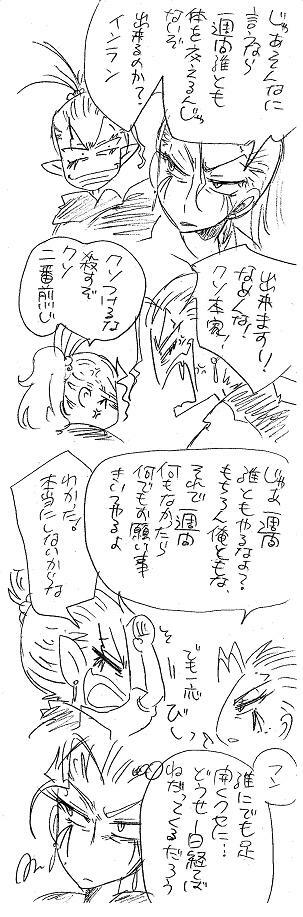 じゃあそんなに
言うなら
一週間誰とも
体を交えるんじゃ
ないぞ
出来るのか?
インラン
出来ますい!
なめんな!
クソ本家!
クソつけるな
殺すぞ
クソ
二番煎じ
じゃあ一週間
誰ともやるなよ?
もちろん俺ともな、
それで一週間
何もなかったら
何でもお願い事
きいてやるよ
わかった。
本当にしないからな
でも一応
びいっ
フン
誰にでも足
開くクセに…
どうせ一日経てば
ねだってくるだろう